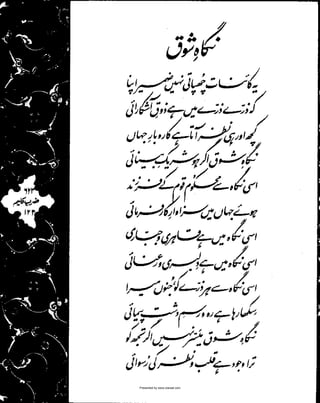 نگاہِ شوق
یہ کائنات چھپاتی نہیں ضمیر اپنا
کہ ذرّے ذرّے میں ہے ذوقِ آشکارائی
کچھ اور ہی نظر آتا ہے کاروبارِ جہاں
نگاہِ شوق اگر ہو شریکِ بینائی
اسی نگاہ سے محکوم قوم کے فرزند
ہوئے جہاں میں سزاوارِ کارفرمائی
اسی نگاہ میں ہے قاہری و جبّاری
اسی نگاہ میں ہے دلبری و رعنائی
اسی نگاہ سے ہر ذرّے کو جنوں میرا
سکھا رہا ہے رہ و رسمِ دشت پیمائی
نگاہِ شوق میسّر نہیں اگر تجھ کو
ترا وجود ہے قلب و نظر کی رسوائی
۶۲۳
ضربِ کلیم
۱۲۳
Presented by www.ziaraat.com